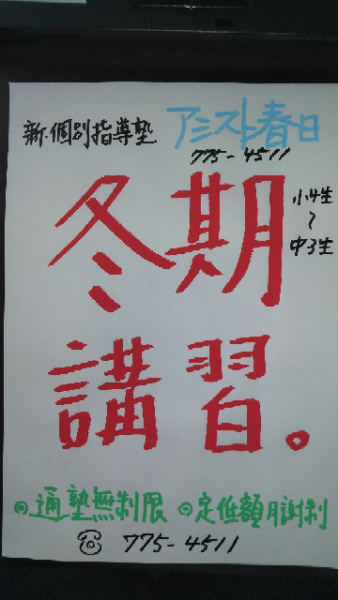 新・個別指導塾 アシスト春日
775-4511
冬期
小4生
〜
中3生
講習。
◎通塾無制限 ◎定低額月謝制
☎ 775-4511